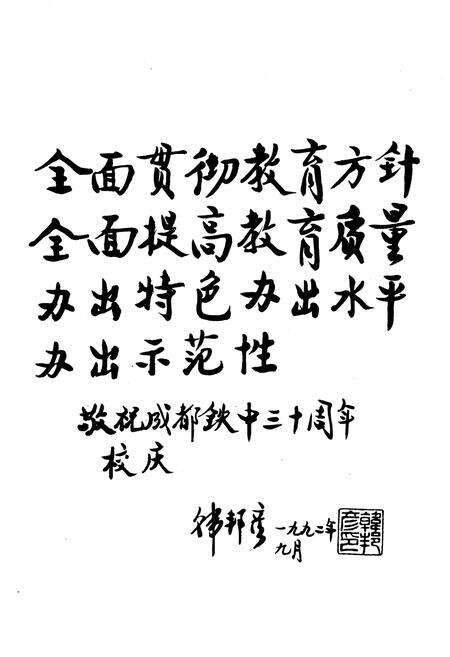 全面贯彻教育方针
全面提高教育质量
办出特色办出水平
办出示范性
敬祝成都鉄中三十周年
校庆
韩邦彦 一九九二年
九月
韓邦彦印